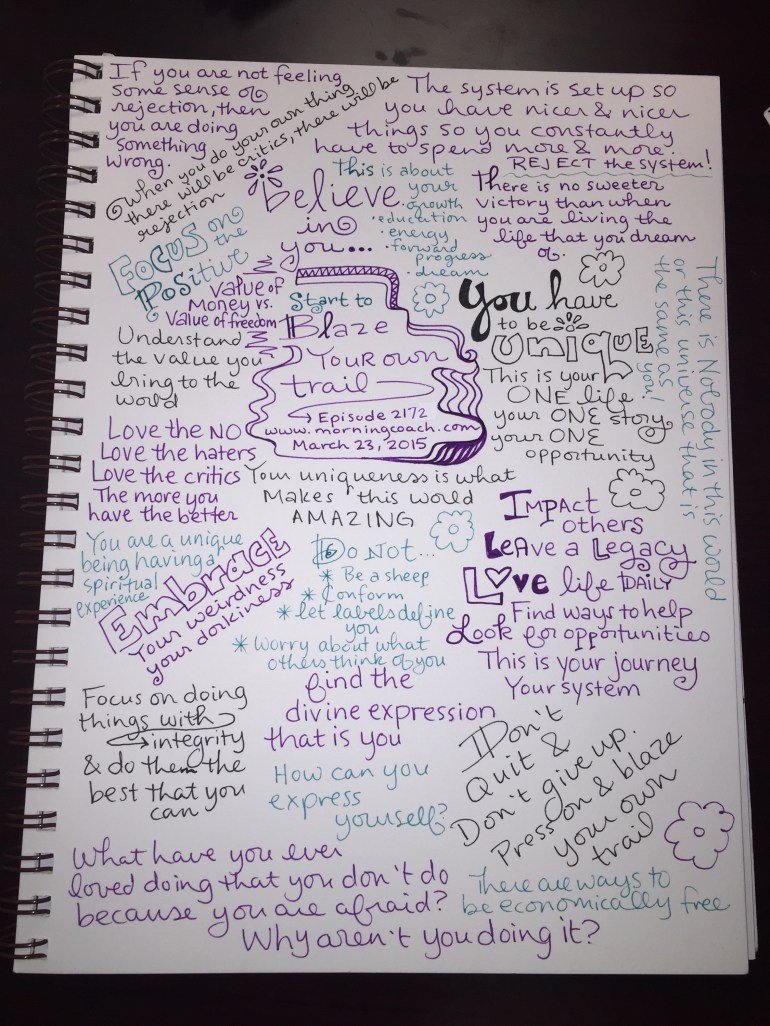 If you are not feeling
some sense of
rejection, then
you are doing
something
wrong.
When you do your own thing
there will be critics, there will be
rejection
The system is set up so
you have nicer & nicer
things so you constantly
have to spend more & more.
REJECT the system!
believe
in
you...
This is about
your
• growth
• education
• energy
• forward
progress
• dream
There is no sweeter
victory than when
you are living the
life that you dream
of.
Focus on
the
Positive
Value of
Money vs.
Value of freedom
Understand
the value you
bring to the
world
Start to
Blaze
Your own
trail
→ Episode 2172
www.morningcoach.com
March 23, 2015
You have
to be
unique
This is your
ONE life
your ONE story
your ONE
opportunity
There is Nobody in this world
or this universe that is
the same as
you!
Love the NO
Love the haters
Love the critics
The more you
have the better
Your uniqueness is what
Makes this world
AMAZING
Impact
others
Leave a Legacy
Love life DAILY
Find ways to help
Look for opportunities
This is your journey
Your system
You are a unique
being having a
spiritual
experience
Embrace
Your weirdness
your dorkiness
Do Not...
* Be a sheep
* Conform
* let labels define
you
* Worry about what
others think of you
find the
divine expression
that is you
Focus on doing
things with
→ integrity
& do them the
best that you
can
How can you
express
yourself?
Don't
Quit &
Don't give up.
Press on & blaze
your own
trail
What have you ever
loved doing that you don't do
because you are afraid?
Why aren't you doing it?
There are ways to
be economically free